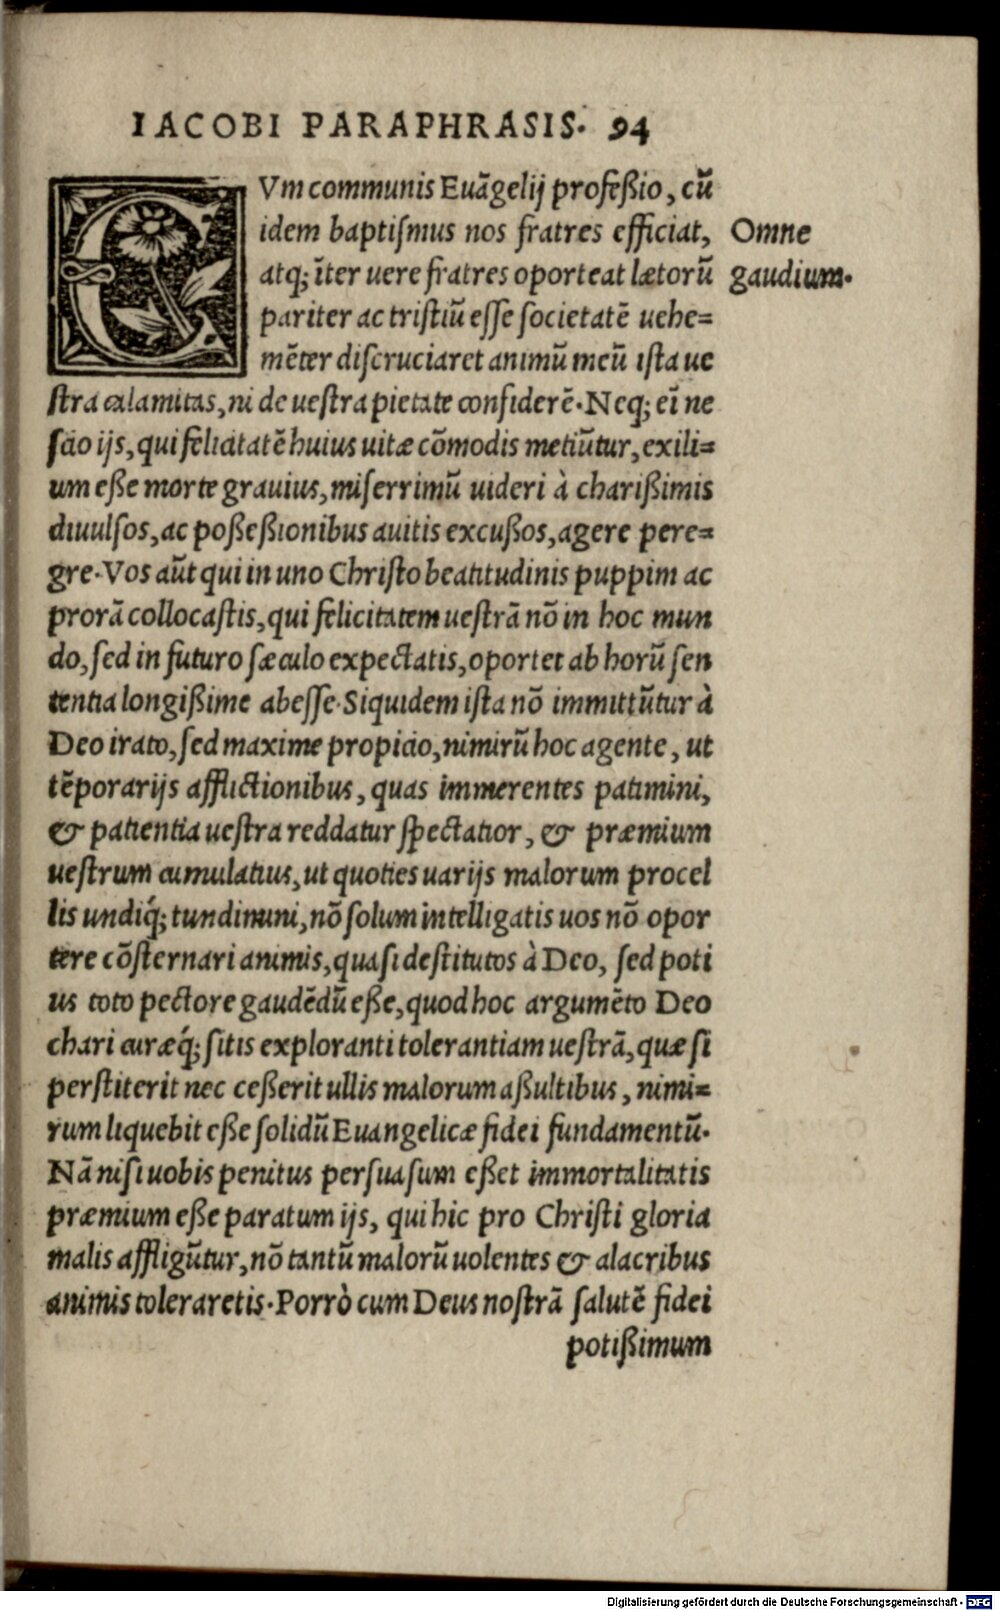 IACOBI PARAPHRASIS. 94
CVm communis Euãgelij profeßio, cũ
idem baptiſmus nos fratres efficiat,
Omne
atq; ĩter uere fratres oporteat lætorũ
gaudium.
pariter ac triſtiũ eſſe ſocietatẽ uehe=
mẽter diſcruciaret animũ meũ iſta ue
ſtra calamitas, ni de ueſtra pietate conſiderẽ. Neq; eĩ ne
ſcio ijs, qui felicitatẽ huius uitæ cõmodis metiũtur, exili=
um eße morte grauius, miſerrimũ uideri à charißimis
diuulſos, ac poßeßionibus auitis excußos, agere pere=
gre. Vos aũt qui in uno Chriſto beatitudinis puppim ac
prorã collocaſtis, qui felicitatem ueſtrã nõ in hoc mun
do, ſed in futuro ſæculo expectatis, oportet ab horũ ſen
tentia longißime abeſſe. Siquidem iſta nõ immittũtur à
Deo irato, ſed maxime propicio, nimirũ hoc agente, ut
tẽporarijs afflictionibus, quas immerentes patimini,
& patientia ueſtra reddatur ſpectatior, & præmium
ueſtrum cumulatius, ut quoties uarijs malorum procel
lis undiq́; tundimini, nõ ſolum intelligatis uos nõ opor
tere cõſternari animis, quaſi deſtitutos à Deo, ſed poti
us toto pectore gaudẽdũ eße, quod hoc argumẽto Deo
chari curæq́; ſitis exploranti tolerantiam ueſtrã, quæ ſi
perſtiterit nec ceßerit ullis malorum aßultibus, nimi=
rum liquebit eße ſolidũ Euangelicæ fidei fundamentũ.
Nã niſi uobis penitus perſuaſum eßet immortalitatis
præmium eße paratum ijs, qui hic pro Chriſti gloria
malis affligũtur, nõ tantũ malorũ uolentes & alacribus
animis toleraretis. Porrò cum Deus noſtrã ſalutẽ fidei
potißimum
Digitalisierung gefördert durch die Deutsche Forschungsgemeinschaft - DFG